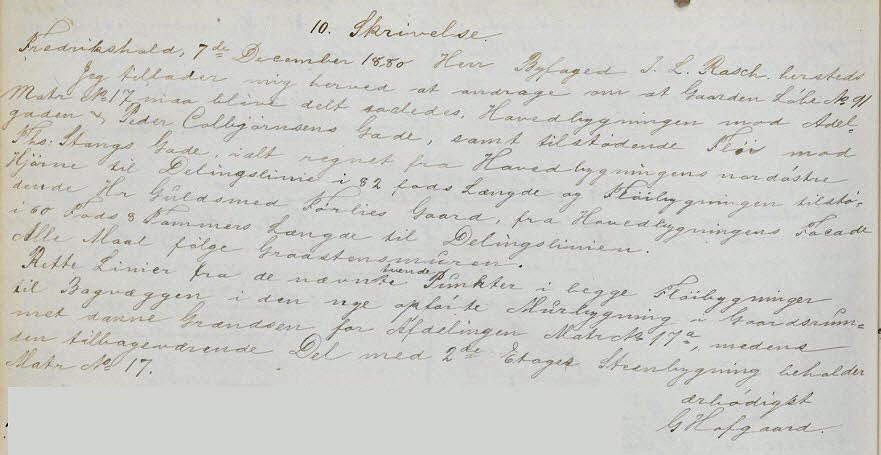 10. Skrivelse.
Fredrikshald, 7de December 1880 Herr Byfoged I. L. Rasch hersteds
Jeg tillader mig herved at andrage om at Gaarden Løbe No 91
Matr No 17 maa blive delt saaledes, Hovedbygningen mod Adel-
gaden & Peder Colbjørnsens Gade, samt tilstødende Fløi mod
Ths: Stangs Gade, ialt regnet fra Hovedbygningens nordøstre
Hjørne til Delingslinie i 82 fods Længde og Fløibygningen tilstø-
dende Hr Guldsmed Førlies Gaard, fra Hovedbygningens Facade
i 60 Fods 8 Tommers Længde til Delingslinien.
Alle Maal følge Graastensmuren.
Rette Linier fra de nævnte tvende Punkter i begge Fløibygninger
til Bagvæggen i den nye opførte Murbygning i Gaardsrum-
met danne Grændsen for Afdelingen Matr No 17a, medens
den tilbageværende Del med 2de Etages Steenbygning beholder
Matr No 17.
ærbødigst
G Hofgaard.